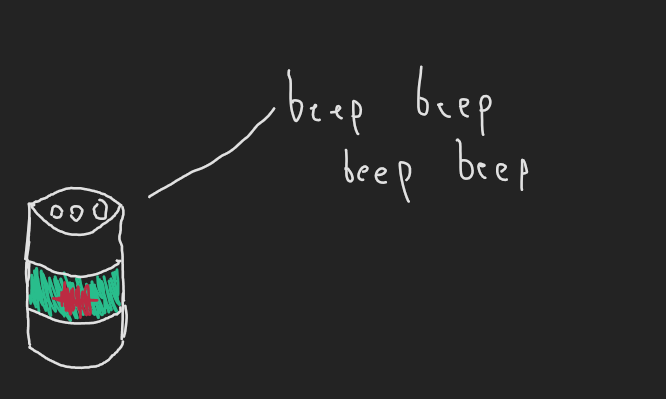 beep beep
beep beep